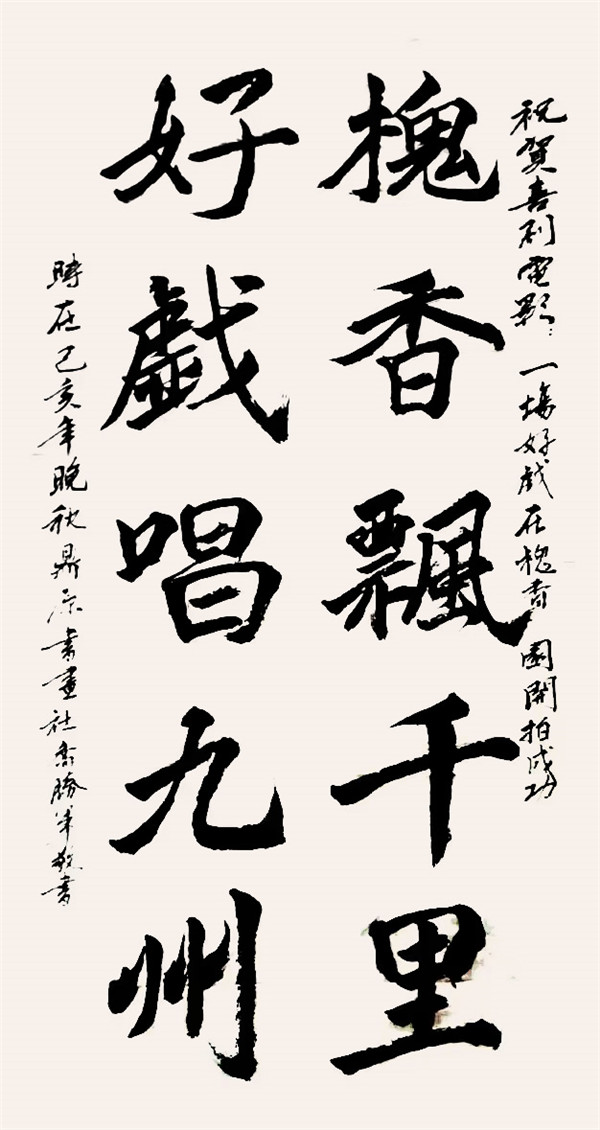 祝贺喜剧電影：一塲好戏在槐香園開拍成功
槐香飄千里
好戲唱九州
時在己亥年晚秋鼎原書畫社喬勝軍敬書